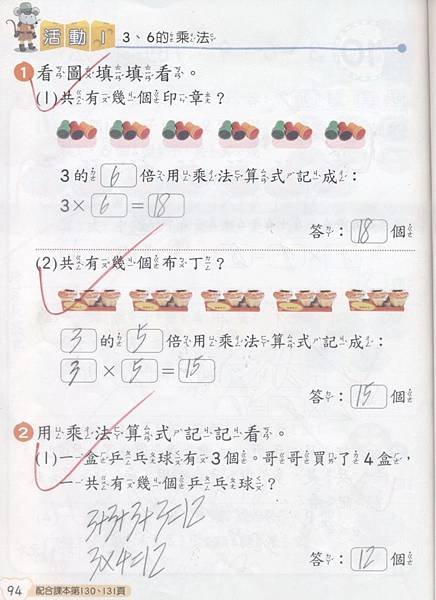 活動1 3、6的乘法
1 看圖填填看。
(1)共有幾個印章？
3的6倍用乘法算式記成：
3×6=18
答：18個
(2)共有幾個布丁？
3的5倍用乘法算式記成：
3×5=15
答：15個
2 用乘法算式記記看。
(1)一盒乒乓球有3個。哥哥買了4盒，
一共有幾個乒乓球？
3+3+3+3=12
3×4=12
答：12個
94 配合課本第130、131頁